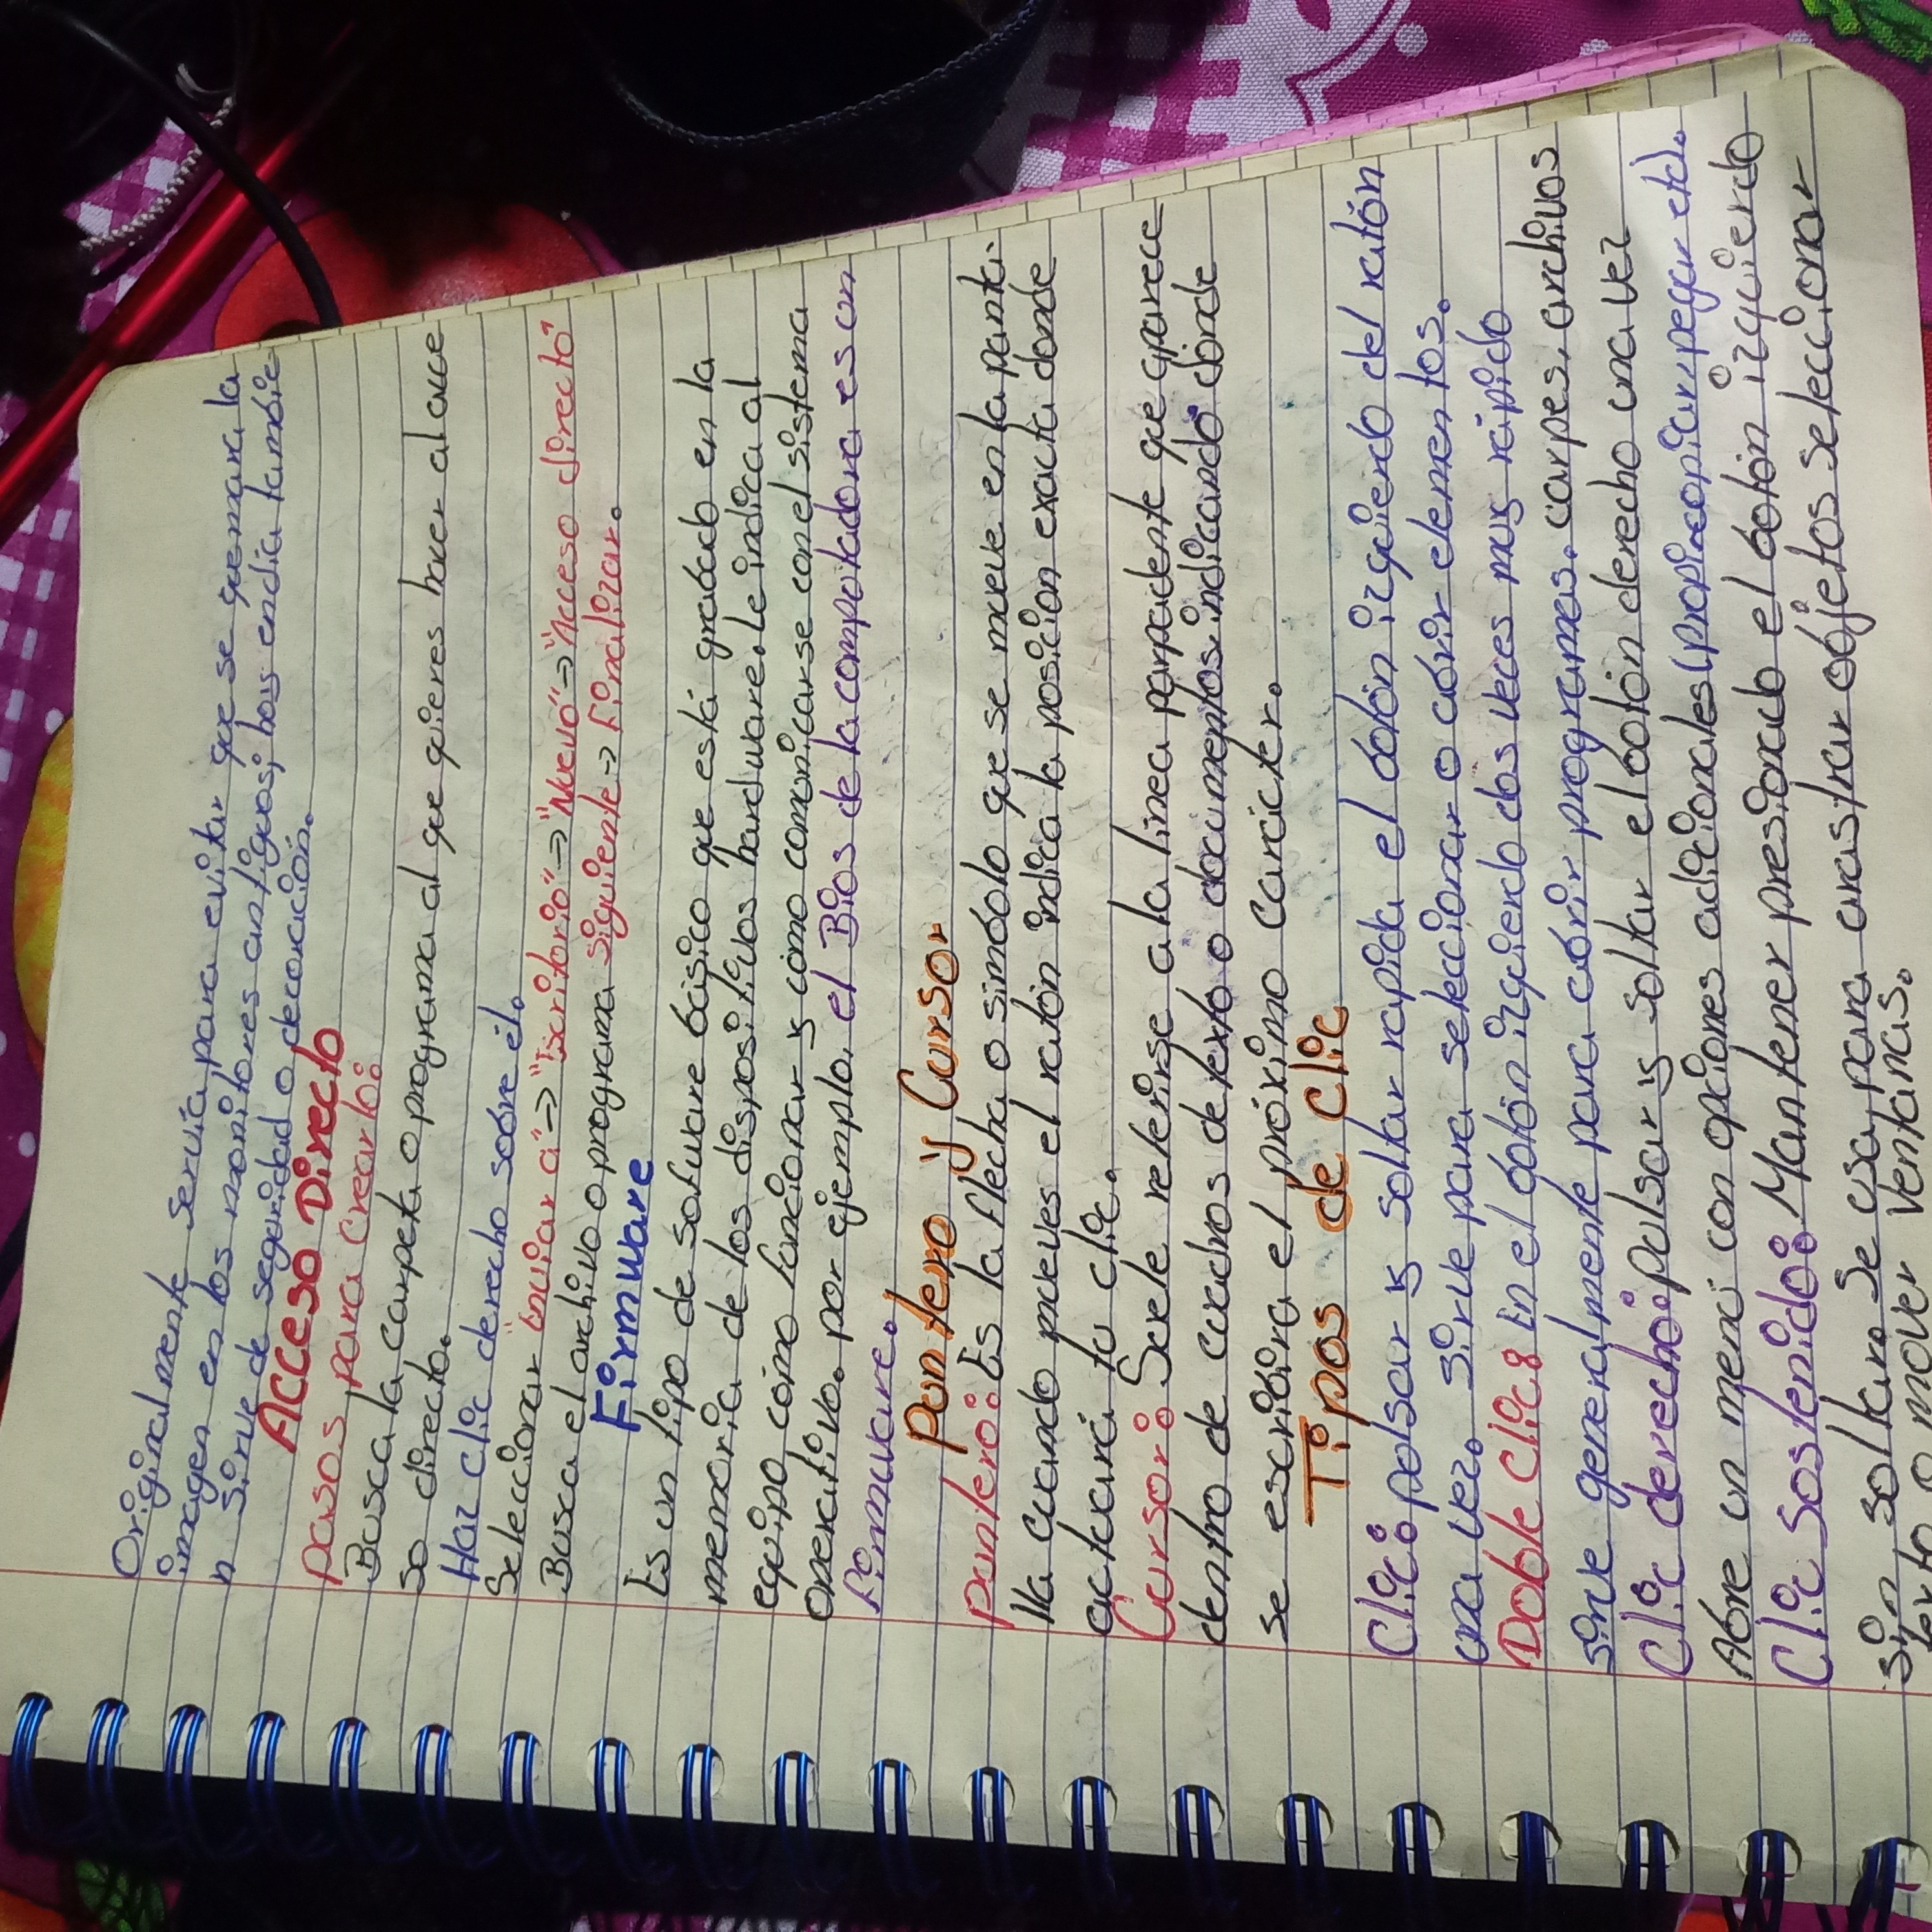 Originalmente servía para evitar que se quemara la
imagen en los monitores antiguos; hoy endía tambié
n sirve de seguridad o decoración.
Acceso Directo
pasos para crearlo:
Busca la carpeta o programa al que quieres hacer al acce
so directo.
Haz clic derecho sobre él.
Seleccionar "enviar a"→ "Escritorio"→ "Nuevo"→ "Acceso directo"
Busca el archivo o programa siguiente→ finalizar.
Firmware
Es un tipo de software básico que está grabado en la
memoria de los dispositivos hardware. Le indica al
equipo cómo funcionar y cómo comunicarse con el sistema
Operativo. por ejemplo, el Bios de la computadora es un
firmware.
Puntero y Cursor
puntero: Es la flecha o símbolo que se mueve en la panta
lla cuando mueves el ratón indica la posición exacta donde
actuará tu clic.
Cursor: Suele referirse a la línea parpadente que aparece
dentro de cuadros de texto o documentos indicando dónde
se escribira el próximo carácter.
Tipos de clic
Clic: pulsar y soltar rapida el botón izquierdo del ratón
una vez. sirve para seleccionar o abrir elementos.
Doble clic: En el botón izquierdo dos veces muy rápido
sirve generalmente para abrir programas. carpes, archivos
Clic derecho: pulsar y soltar el botón derecho una vez
Abre un menú con opciones adicionales (propi. copiar, pegar etc).
Clic sostenido: Mantener presionado el botón izquierdo
sin soltar. Se usa para arastrar objetos seleccionar
texto o mover ventanas.